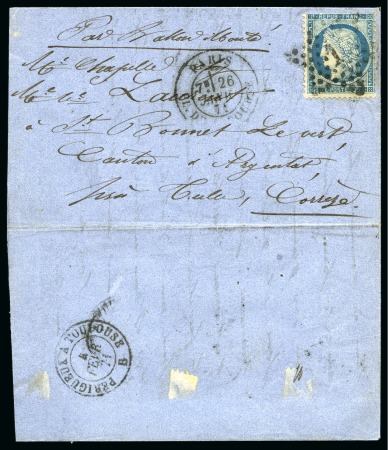 Par Ballon Monté
REPUB. FRANC.
Mr Chapelle
PARIS
26
71
Mr
à St Bonnet Le vert
Canton d'Argentat
près Tulle, Corrèze
PERIGUEUX A TOULOUSE
4
FEVR
71
B